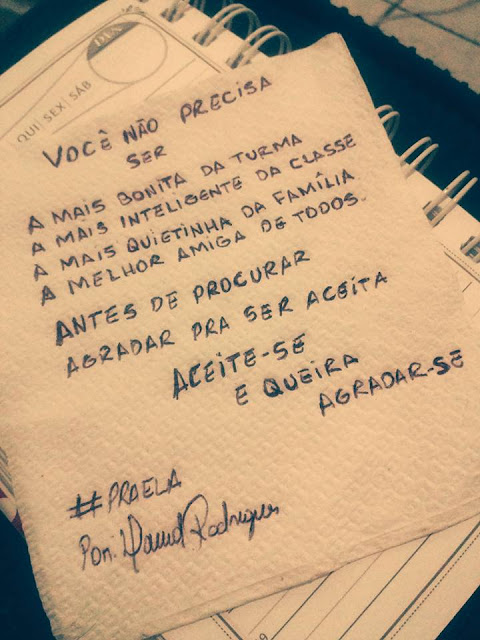 DIA
QUI SEX SÁB
VOCÊ NÃO PRECISA
SER
A MAIS BONITA DA TURMA
A MAIS INTELIGENTE DA CLASSE
A MAIS QUIETINHA DA FAMÍLIA
A MELHOR AMIGA DE TODOS.
ANTES DE PROCURAR
AGRADAR PRA SER ACEITA
ACEITE-SE
E QUEIRA
AGRADAR-SE
#PRAELA
Por: Rodrigues